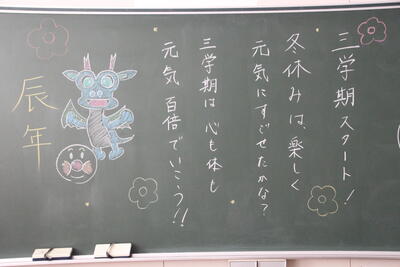 三学期スタート!
冬休みは、楽しく
元気にすごせたかな?
三学期は心も体も
元気百倍でいこう!!
辰年